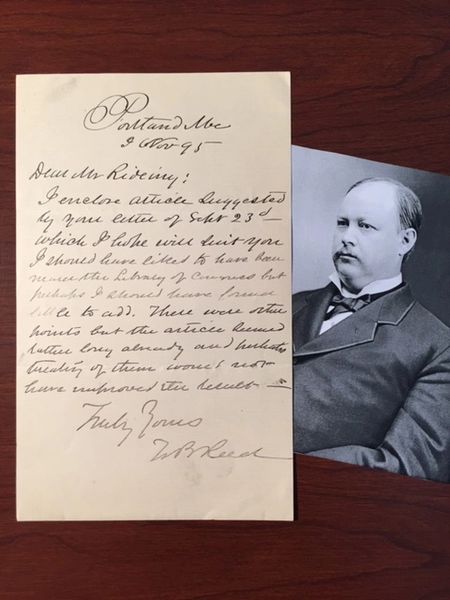 Portland Me
9 Nov 95
Dear Mr Rideing:
I enclose article suggested
by your letter of Sept 23d —
which I hope will suit you
I should have liked to have been
nearer the Library of Congress but
perhaps I should have found
little to add. There were other
points but the article seemed
rather long already and perhaps
treating of them would not
have improved the result —
Truly Yours
T B Reed